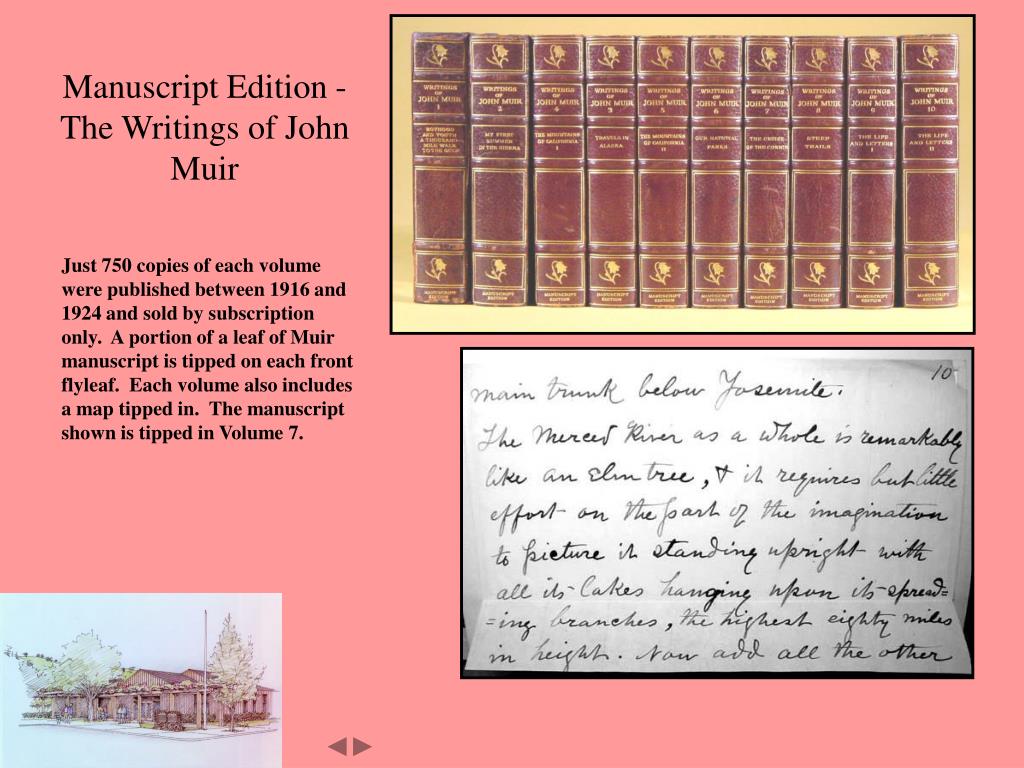 Manuscript Edition -
The Writings of John
Muir
Just 750 copies of each volume
were published between 1916 and
1924 and sold by subscription
only. A portion of a leaf of Muir
manuscript is tipped on each front
flyleaf. Each volume also includes
a map tipped in. The manuscript
shown is tipped in Volume 7.
WRITINGS
OF
JOHN MUIR
1
BOYHOOD
AND YOUTH
A THOUSAND
MILE WALK
TO THE GULF
MANUSCRIPT
EDITION
WRITINGS
OF
JOHN MUIR
2
MY FIRST
SUMMER
IN THE SIERRA
MANUSCRIPT
EDITION
WRITINGS
OF
JOHN MUIR
4
THE MOUNTAINS
OF CALIFORNIA
I
MANUSCRIPT
EDITION
WRITINGS
OF
JOHN MUIR
3
TRAVELS IN
ALASKA
MANUSCRIPT
EDITION
WRITINGS
OF
JOHN MUIR
5
THE MOUNTAINS
OF CALIFORNIA
II
MANUSCRIPT
EDITION
WRITINGS
OF
JOHN MUIR
6
OUR NATIONAL
PARKS
MANUSCRIPT
EDITION
WRITINGS
OF
JOHN MUIR
7
THE CRUISE
OF THE CORWIN
MANUSCRIPT
EDITION
WRITINGS
OF
JOHN MUIR
8
STEEP
TRAILS
MANUSCRIPT
EDITION
WRITINGS
OF
JOHN MUIR
9
THE LIFE
AND LETTERS
I
MANUSCRIPT
EDITION
WRITINGS
OF
JOHN MUIR
10
THE LIFE
AND LETTERS
II
MANUSCRIPT
EDITION
10
main trunk below Yosemite.
The Merced River as a whole is remarkably
like an Elm tree, & it requires but little
effort on the part of the imagination
to picture it standing upright with
all its Lakes hanging upon its spread=
=ing branches, the highest eighty miles
in height. Now add all the other